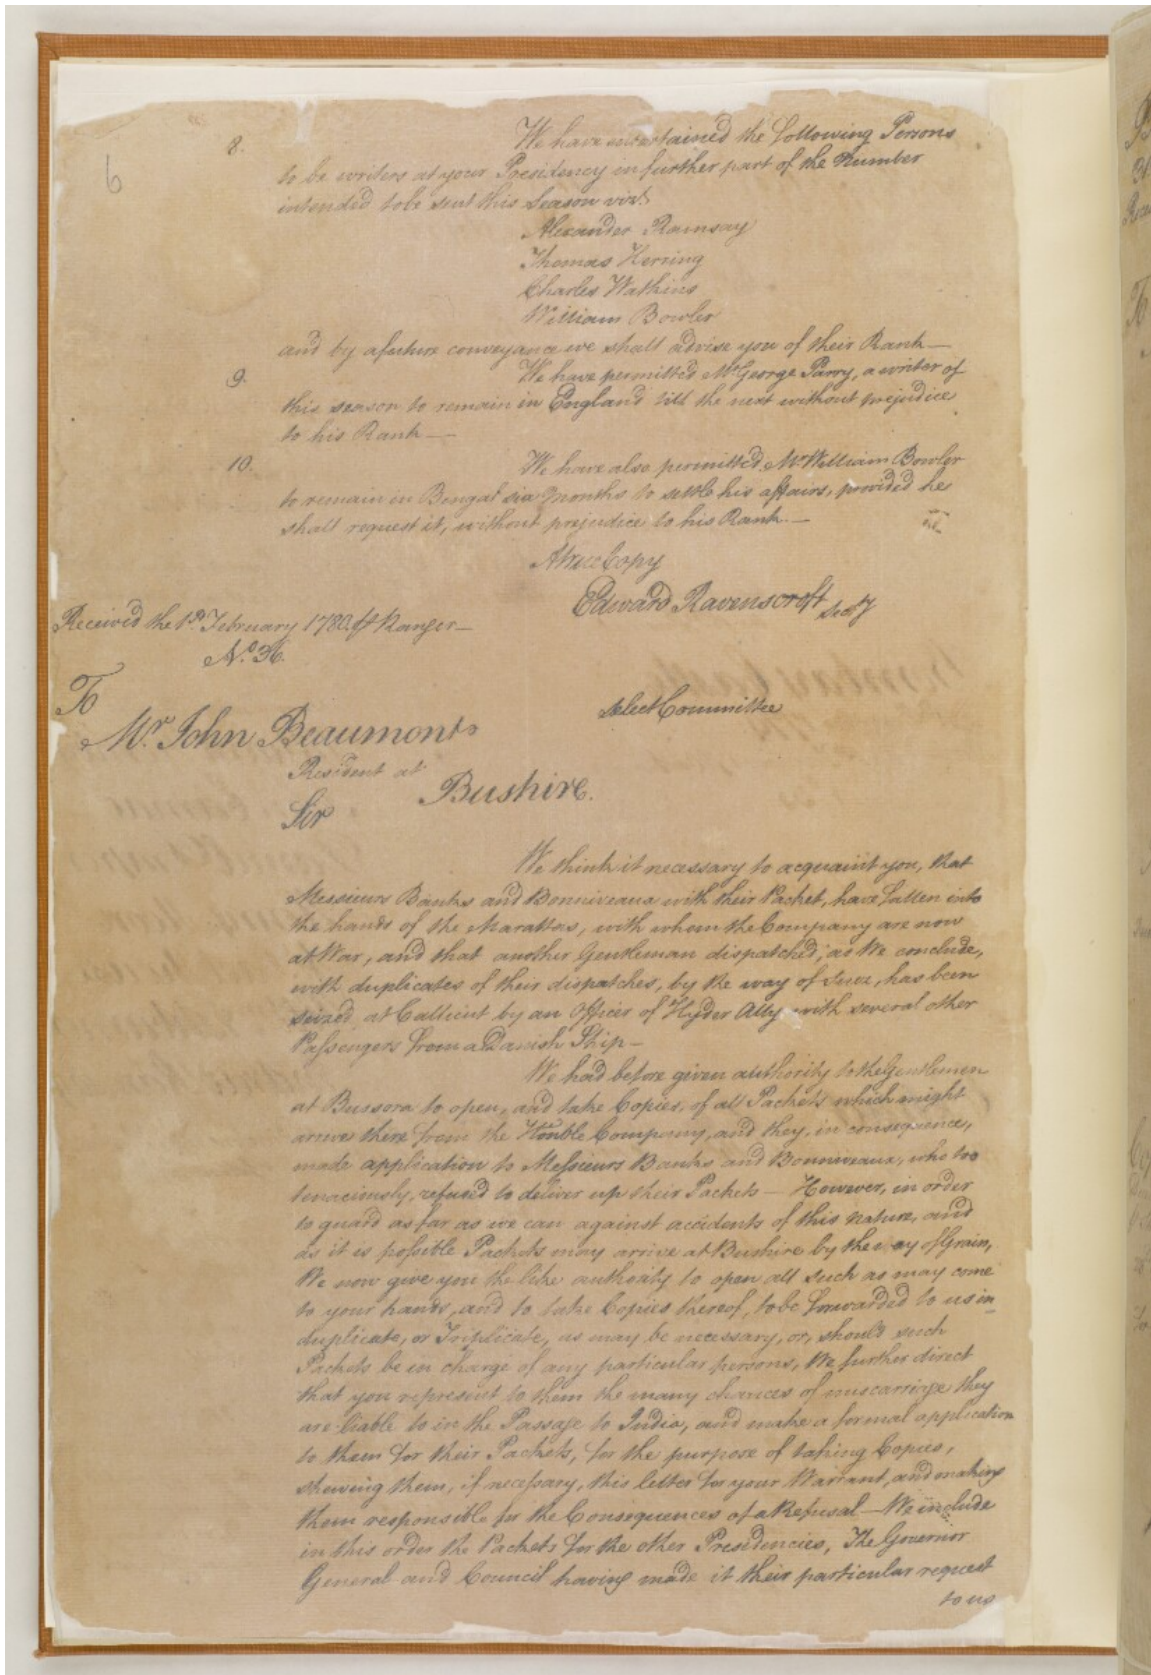 6
8. We have entertained the following Persons
to be writers at your Presidency in further part of the Number
intended to be sent this Season vizt.
Alexander Ramsay
Thomas Herring
Charles Watkins
William Bowler
and by a future conveyance we shall advise you of their Rank—
9. We have permitted Mr George Parry, a writer of
this season to remain in England till the next without prejudice
to his Rank—
10. We have also permitted Mr William Bowler
to remain in Bengal six Months to settle his affairs, provided he
shall request it, without prejudice to his Rank.—
A true Copy
Edward Ravenscroft Secry
Received the 1st February 1780 Ranger—
No. 36.
To
Select Committee
Mr. John Beaumont
Resident at
Bushire.
Sir
We think it necessary to acquaint you, that
Messieurs Banks and Bonniveaux with their Packet, have fallen into
the hands of the Marattas, with whom the Company are now
at War, and that another Gentleman dispatched, as We conclude,
with duplicates of their dispatches, by the way of Suez, has been
seized at Callicut by an Officer of Hyder Ally with several other
Passengers from a Danish Ship—
We had before given authority to the Gentlemen
at Bussora to open, and take Copies, of all Packets which might
arrive there from the Honble Company, and they, in consequence,
made application to Messieurs Banks and Bonniveaux, who too
tenaciously, refused to deliver up their Packets— However, in order
to guard as far as we can against accidents of this nature, and
as it is possible Packets may arrive at Bushire by the way of Grain,
We now give you the like authority to open all such as may come
to your hands, and to take Copies thereof, to be forwarded to us in
duplicate, or Triplicate, as may be necessary, or, should such
Packets be in charge of any particular persons, We further direct
that you represent to them the many chances of miscarriage they
are liable to in the Passage to India, and make a formal application
to them for their Packets, for the purpose of taking Copies,
shewing them, if necessary, this letter for your Warrant, and making
them responsible for the Consequences of a Refusal—We include
in this order the Packets for the other Presidencies, The Governor
General and Council having made it their particular request
to us